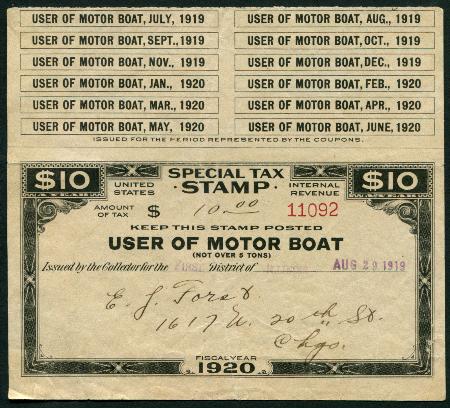 USER OF MOTOR BOAT, JULY, 1919 USER OF MOTOR BOAT, AUG., 1919
USER OF MOTOR BOAT, SEPT., 1919 USER OF MOTOR BOAT, OCT., 1919
USER OF MOTOR BOAT, NOV., 1919 USER OF MOTOR BOAT, DEC., 1919
USER OF MOTOR BOAT, JAN., 1920 USER OF MOTOR BOAT, FEB., 1920
USER OF MOTOR BOAT, MAR., 1920 USER OF MOTOR BOAT, APR., 1920
USER OF MOTOR BOAT, MAY, 1920 USER OF MOTOR BOAT, JUNE, 1920
ISSUED FOR THE PERIOD REPRESENTED BY THE COUPONS.
$10 SPECIAL TAX $10
A YEAR UNITED STATES STAMP INTERNAL REVENUE A YEAR
AMOUNT OF TAX $ 10.00 11092
KEEP THIS STAMP POSTED
USER OF MOTOR BOAT
(NOT OVER 5 TONS)
Issued by the Collector for the FIRST District of ILLINOIS AUG 29 1919
E. J. Forst
1617 W. 20th St.
Chgo.
FISCAL YEAR
1920